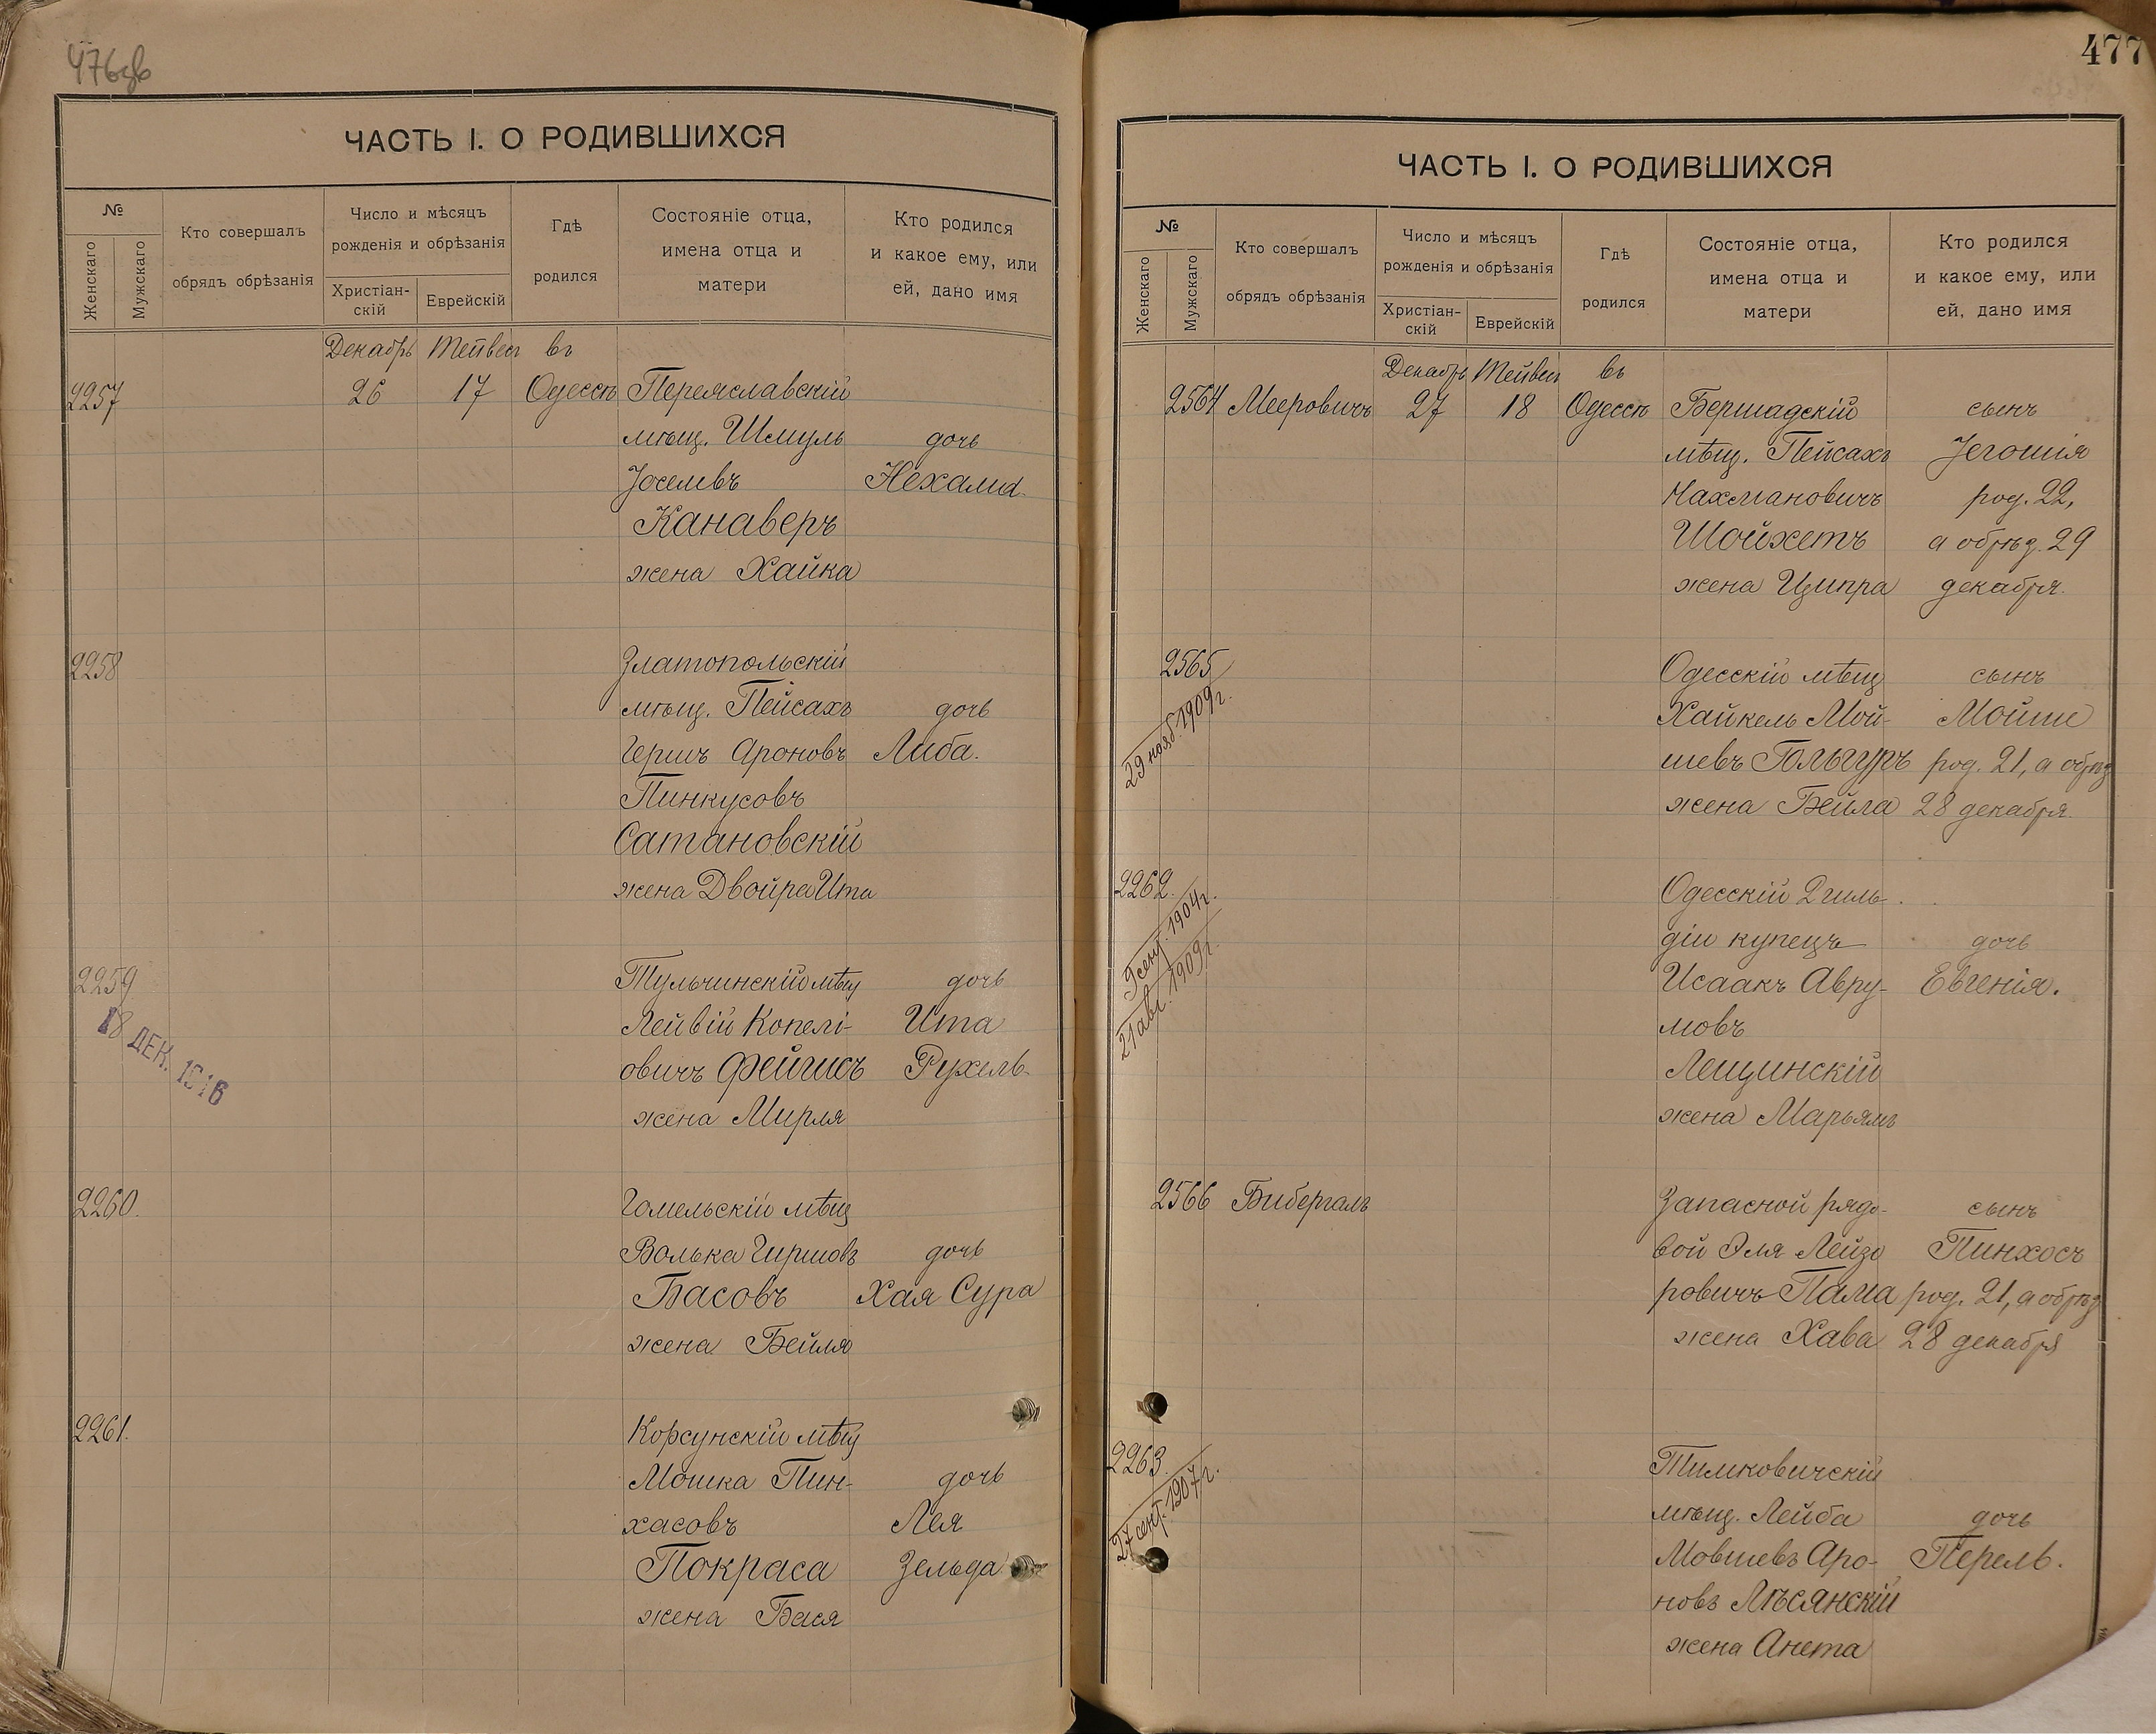 476об
ЧАСТЬ I. О РОДИВШИХСЯ
№
Женскаго
Мужскаго
Кто совершалъ
обрядъ обрѣзанія
Число и мѣсяцъ
рожденія и обрѣзанія
Христіан-
скій
Еврейскій
Гдѣ
родился
Состояніе отца,
имена отца и
матери
Кто родился
и какое ему, или
ей, дано имя
Декабрь Тейвес въ
2257 26 17 Одессѣ Переяславскій
мѣщ. Шмуль дочь
Іоселевъ Нехама.
Канаверъ
жена Хайка
2258 Златопольскій
мѣщ. Пейсахъ дочь
Гершъ Ароновъ Либа.
Пинкусовъ
Сатановскій
жена Двойра Ита
2259 Тульчинскій мѣщ дочь
18 ДЕК. 1916
Лейвій Копелі- Ита
овичъ Фейгисъ Рухель.
жена Мирля
2260. Гомельскій мѣщ
Волька Гиршовъ дочь
Басовъ Хая Сура
жена Бейля
2261. Корсунскій мѣщ
Мошка Пин- дочь
хасовъ Лея
Покраса Зельда
жена Бася
477
ЧАСТЬ I. О РОДИВШИХСЯ
№
Женскаго
Мужскаго
Кто совершалъ
обрядъ обрѣзанія
Число и мѣсяцъ
рожденія и обрѣзанія
Христіан-
скій
Еврейскій
Гдѣ
родился
Состояніе отца,
имена отца и
матери
Кто родился
и какое ему, или
ей, дано имя
Декабрь Тейвес въ
2564 Мееровичъ 27 18 Одессѣ Бершадскій сынъ
мѣщ. Пейсахъ Іегошія
Нахмановичъ род. 22,
Шойхетъ а обрѣз. 29
жена Ципра декабря.
2565 Одесскій мѣщ сынъ
29 нояб. 1909 г.
Хайкель Мой- Мойше
шевъ Гольгуръ род. 21, а обрѣз
жена Бейла 28 декабря.
2262. Одесскій 2 гиль-
9 сент. 1904 г.
21 авг. 1909 г.
діи купецъ дочь
Исаакъ Авру- Евгенія.
мовъ
Лещинскій
жена Марьямъ
2566 Бибергалъ Запасной рядо- сынъ
вой Эля Лейзо Пинхосъ
ровичъ Пама род. 21, а обрѣз
жена Хава 28 декабря
2263. Тимковичскій
27 сент. 1907 г.
мѣщ. Лейба дочь
Мовшевъ Аро- Перель.
новъ Лѣсянскій
жена Анета